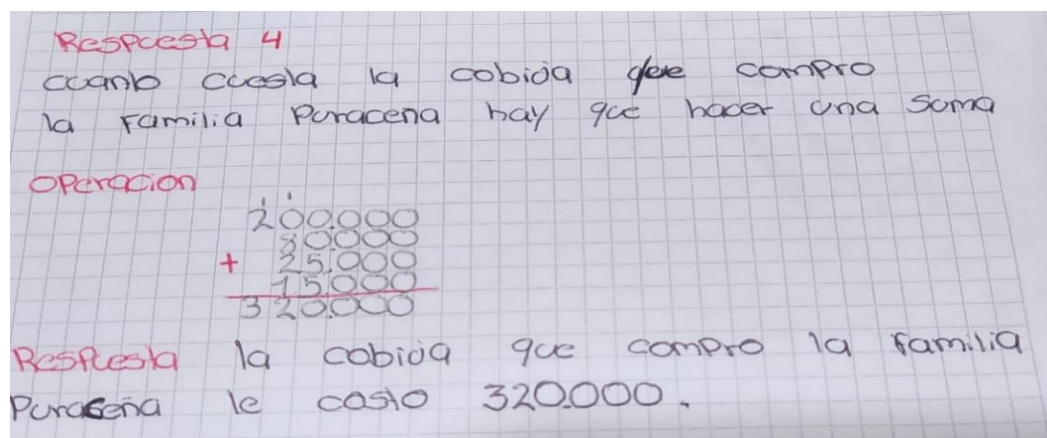 Respuesta 4
cuanto cuesta la cobida que compro
la familia Puracena hay que hacer una suma
operacion
1 1
200.000
80000
+ 25.000
15.000
320.000
Respuesta la cobida que compro la familia
Puraceña le costo 320.000.